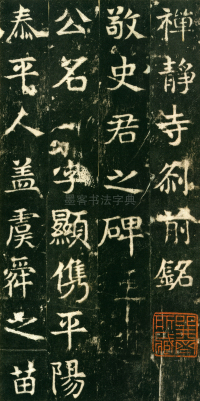 禅静寺刹前銘
敬史君之碑
公名一字顯儁平陽
泰平人盖虞舜之苗
墨客书法字典